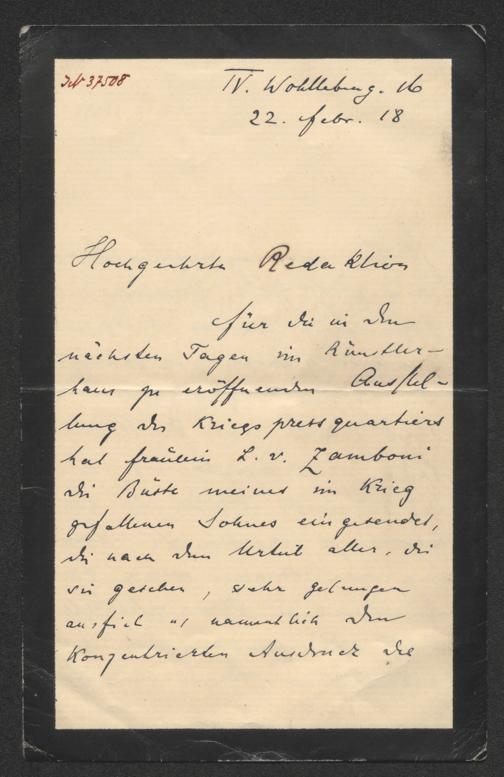 IN 37508
IV. Wohllebeng. 16
22. febr. 18
Hochgeehrte Redaktion
für die in den
nächsten Tagen im Künstler-
haus zu eröffnenden Ausstel-
lung des Kriegspressquartiers
hat fräulein L. v. Zamboni
die Büste meines im Krieg
gefallenen Sohnes eingesendet,
die nach dem Urteil aller, die
sie gesehen, sehr gelungen
ausfiel u namentlich den
konzentrierten Ausdruck des